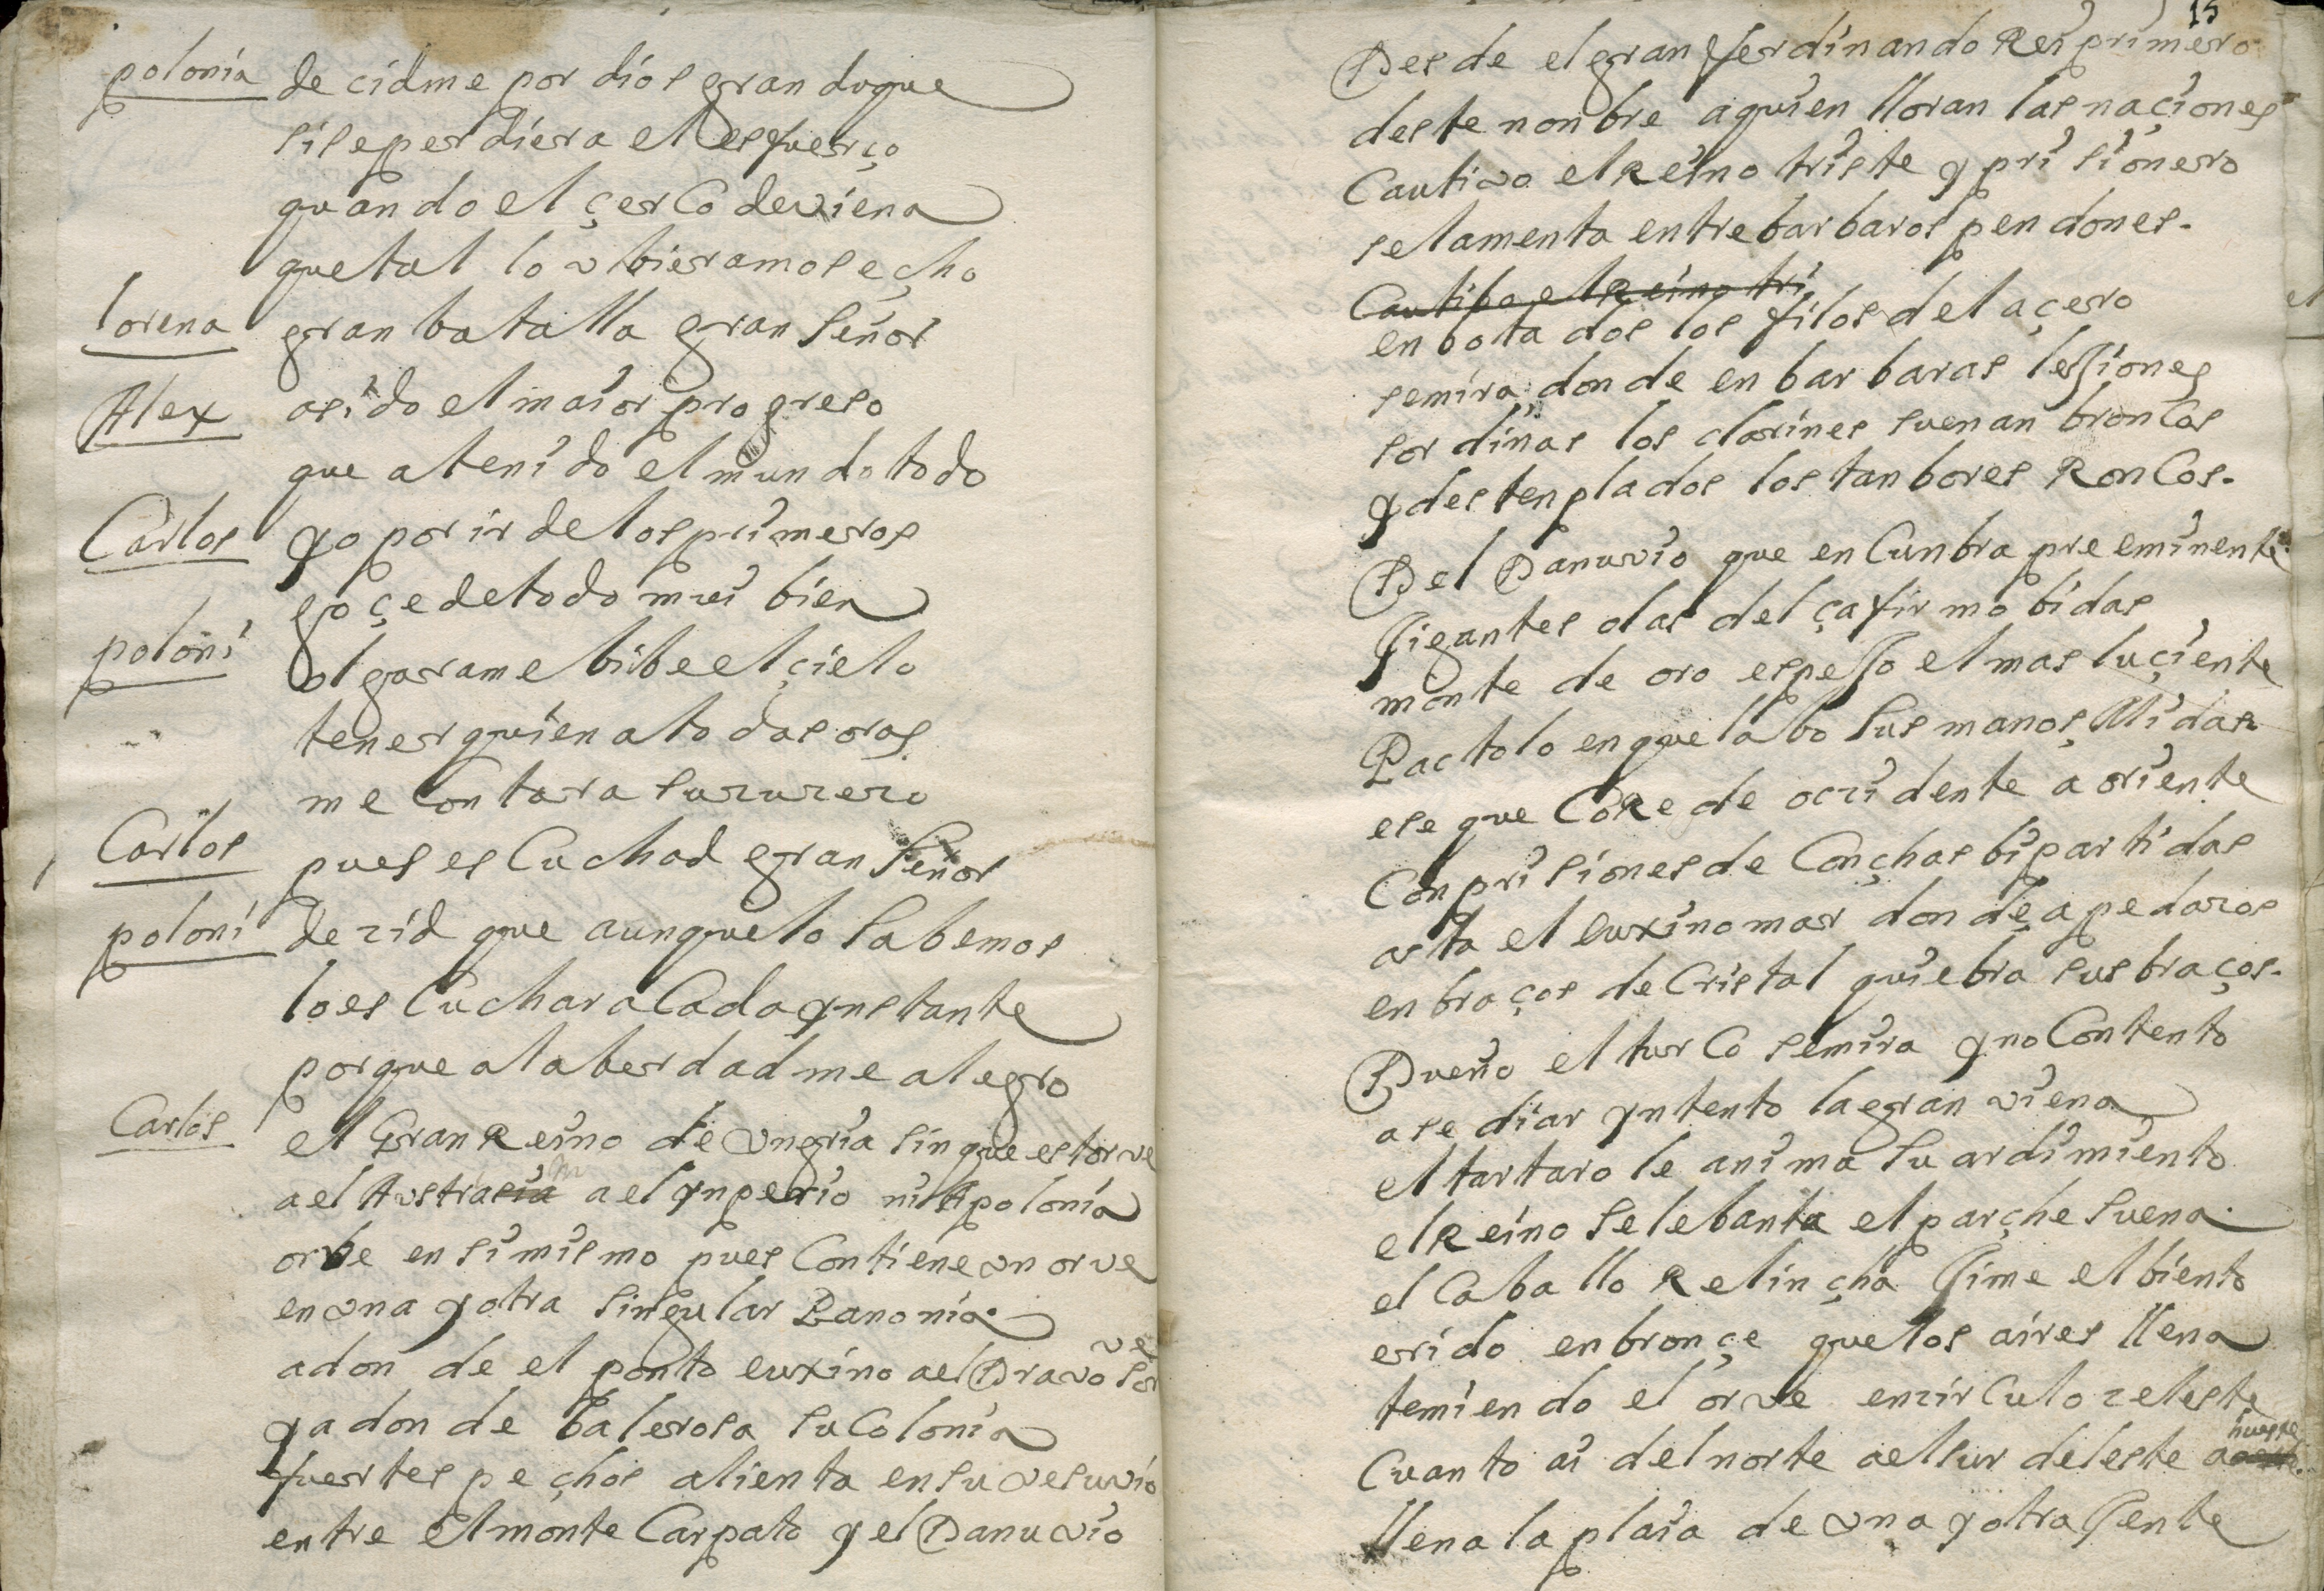 polonia de cidme por dios gran duque
si se perdiera el esfuerço
quando el çerCo de viena
que tal lo vbieramos echo
lorena gran batalla gran señor
Alex asido el maior progreso
que a tenido el mundo todo
Carlos yo por ir de los primeros
goçe de todo mui bien
poloni olgarame bibe el çielo
tener quien a todas oras
me Contara su zuzezo
Carlos pues es Cuchad gran señor
poloni dezid que aunque lo sabemos
lo es Cuchar a Cada ynstante
porque a la berdad me alegro
Carlos el Gran Reino de vngria sin que estorve
a el Avstrasia a el ynperio ni A polonia
orbe en si mismo pues Contiene vn orve
en vna y otra singular Panonia.
adon de el ponto euxino ael Dravo sorve
ya don de balerosa su Colonia
fuertes pechos alienta en su vesuvio
entre el monte Carpato y el Danuvio
15
Des de el gran ferdinando Rei primero
deste nonbre a quien lloran las naciones
Cautivo el Reino triste y prisionero
se lamenta entre barbaros pendones.
Cautibo el Reino tri
enbota dos los filos del açero
se mira donde en bar baras lessiones
sor dinas los clarines suenan bronCos
y destenplados los tanbores RonCos.
Del Danuvio que en Cunbra pre eminente
Gigantes olas del çafir mo bidas
monte de oro espesso el mas luçiente
Pactolo en que labo sus manos Midas
ese que CoRe de oczidente a oriente
Con prisiones de Conchas bipartidas
asta el euxino mar donde a pedazos
en braços de Cristal quiebra sus braços.
Dueño el turCo se mira y no Contento
a se diar yntento la gran viena
el tartaro le anima su ardimiento
el Reino se lebanta el parche suena.
el Caballo Relincha Gime el biento
erido en bronçe que los aires llena
temiendo el orve en zirCulo zeleste
Cuanto ai del norte a el sur del este a hueste
llena la plaia de vna y otra Gente